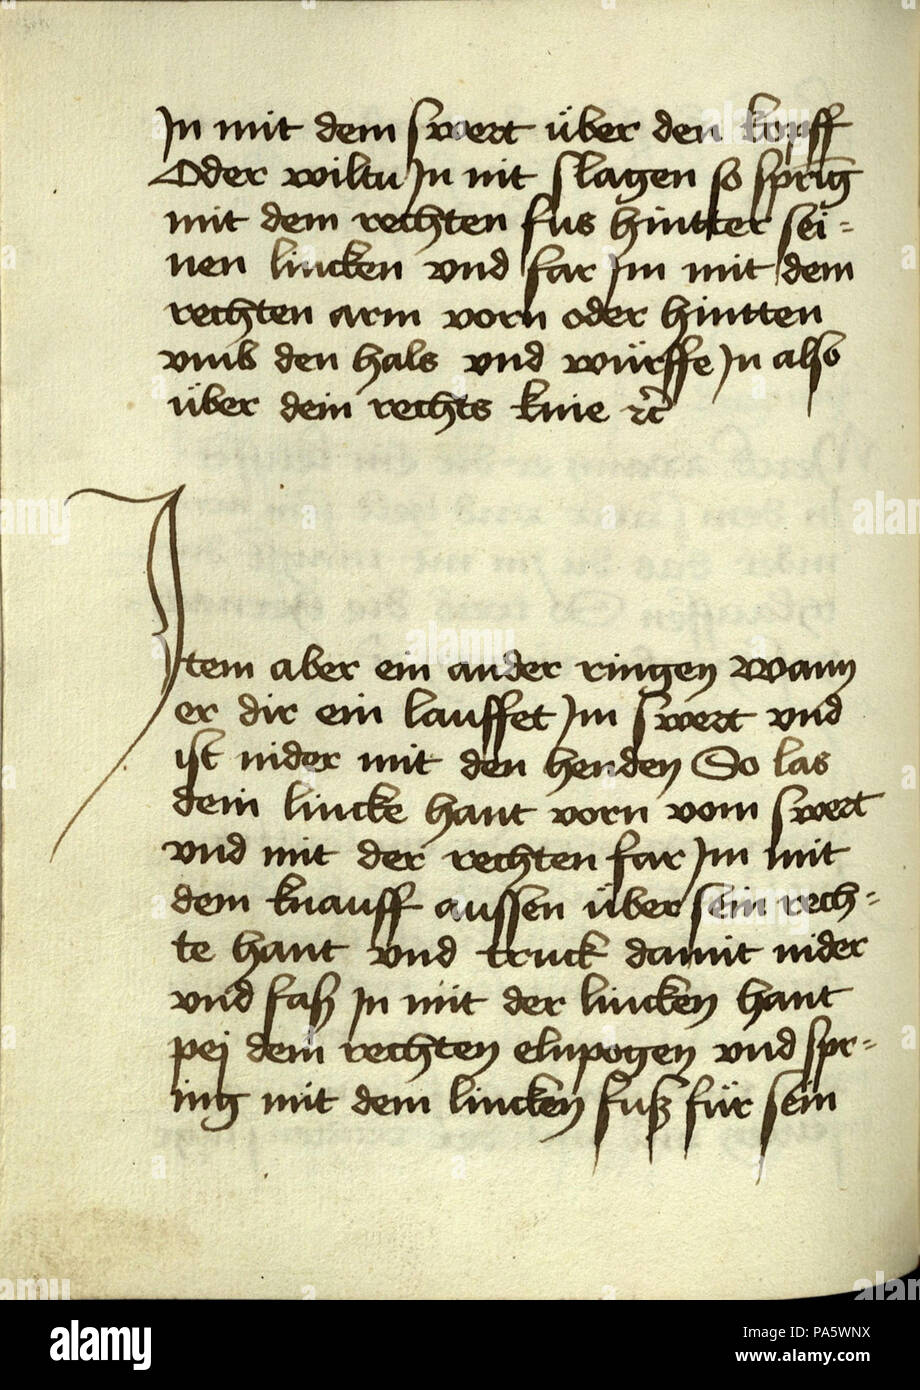 Jn mit dem swert über den kopff
Oder wiltu Jn nit slagen so spring
mit dem rechten fus hintter sei=
nen lincken vnd far Jm mit dem
rechten arm vorn oder hintten
vmb den hals vnd würffe Jn also
über dein rechts knie ꝛc̄
Jtem aber ein ander ringen wann
er dir ein lauffet Jm swert vnd
ist nider mit den henden So las
dein lincke hant vorn vom swert
vnd mit der rechten far Jm mit
dem knauff aussen über sein rech=
te hant vnd truck damit nider
vnd faß Jn mit der lincken hant
pej dem rechten elnpogen vnd spr=
ing mit dem lincken fuß für sein
alamy
Image ID: PA5WNX
www.alamy.com